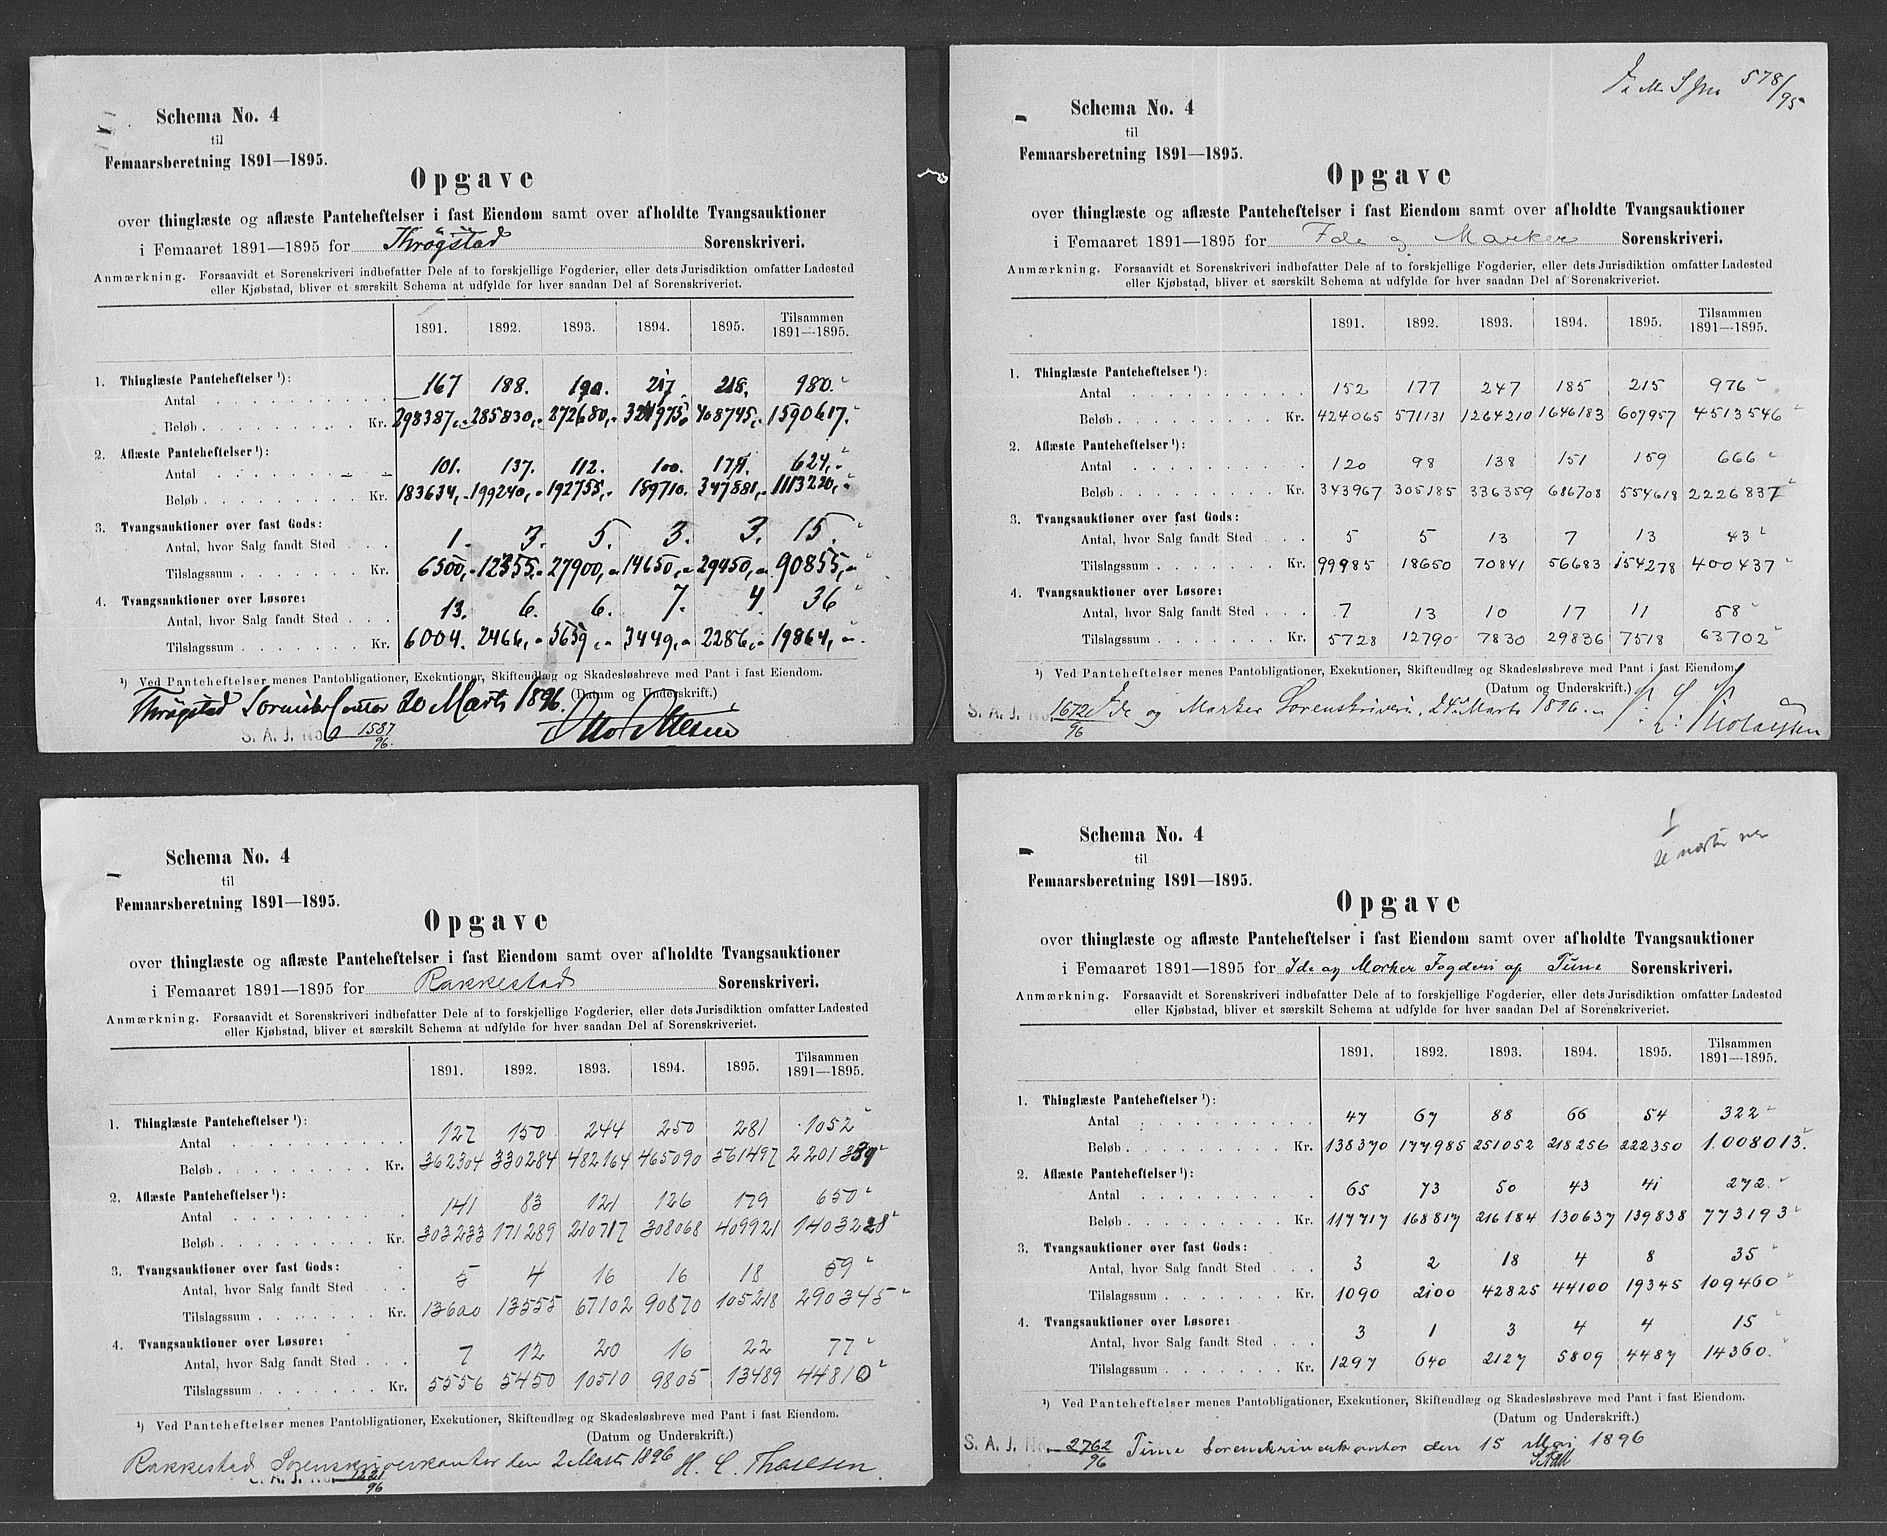 Schema No. 4
til
Femaarsberetning 1891—1895.
Opgave
over thinglæste og aflæste Panteheftelser i fast Eiendom samt over afholdte Tvangsauktioner
i Femaaret 1891—1895 for Thrøgstad Sorenskriveri.
Anmærkning. Forsaavidt et Sorenskriveri indbefatter Dele af to forskjellige Fogderier, eller dets Jurisdiktion omfatter Ladested
eller Kjøbstad, bliver et særskilt Schema at udfylde for hver saadan Del af Sorenskriveriet.
1891. 1892. 1893. 1894. 1895. Tilsammen 1891—1895.
1. Thinglæste Panteheftelser ¹):
Antal 167 188. 190. 217. 218. 980.
Beløb Kr. 298387,- 285830,- 272680,- 324975 408745,- 1590617.
2. Aflæste Panteheftelser ¹):
Antal 101. 137. 112. 100. 174. 624.
Beløb Kr. 183634,- 199240,- 192755,- 189710. 347881,- 1113220,-
3. Tvangsauktioner over fast Gods:
Antal, hvor Salg fandt Sted 1. 3. 5. 3. 3. 15.
Tilslagssum Kr. 6500,- 12355,- 27900,- 14650,- 29450,- 90855,-
4. Tvangsauktioner over Løsøre:
Antal, hvor Salg fandt Sted 13. 6. 6. 7. 4. 36
Tilslagssum Kr. 6004. 2466,- 5659,- 3449,- 2286,- 19864,-
¹) Ved Panteheftelser menes Pantobligationer, Exekutioner, Skiftendlæg og Skadesløsbreve med Pant i fast Eiendom.
(Datum og Underskrift.)
Thrøgstad 20 Marts 1896.
S. A. J. No. 1587/96.
Schema No. 4
til
Femaarsberetning 1891—1895.
578/95
Opgave
over thinglæste og aflæste Panteheftelser i fast Eiendom samt over afholdte Tvangsauktioner
i Femaaret 1891—1895 for Ide og Marker Sorenskriveri.
Anmærkning. Forsaavidt et Sorenskriveri indbefatter Dele af to forskjellige Fogderier, eller dets Jurisdiktion omfatter Ladested
eller Kjøbstad, bliver et særskilt Schema at udfylde for hver saadan Del af Sorenskriveriet.
1891. 1892. 1893. 1894. 1895. Tilsammen 1891—1895.
1. Thinglæste Panteheftelser ¹):
Antal 152 177 247 185 215 976
Beløb Kr. 424065 571131 1264210 1646183 607957 4513546
2. Aflæste Panteheftelser ¹):
Antal 120 98 138 151 159 666
Beløb Kr. 343967 305185 336359 686708 554618 2226837
3. Tvangsauktioner over fast Gods:
Antal, hvor Salg fandt Sted 5 5 13 7 13 43
Tilslagssum Kr. 99985 18650 70841 56683 154278 400437
4. Tvangsauktioner over Løsøre:
Antal, hvor Salg fandt Sted 7 13 10 17 11 58
Tilslagssum Kr. 5728 12790 7830 29836 7518 63702
¹) Ved Panteheftelser menes Pantobligationer, Exekutioner, Skiftendlæg og Skadesløsbreve med Pant i fast Eiendom.
(Datum og Underskrift.)
S. A. J. No. 1672/96 Ide og Marker Sorenskriveri, 24 Marts 1896.
Schema No. 4
til
Femaarsberetning 1891—1895.
Opgave
over thinglæste og aflæste Panteheftelser i fast Eiendom samt over afholdte Tvangsauktioner
i Femaaret 1891—1895 for Rakkestad Sorenskriveri.
Anmærkning. Forsaavidt et Sorenskriveri indbefatter Dele af to forskjellige Fogderier, eller dets Jurisdiktion omfatter Ladested
eller Kjøbstad, bliver et særskilt Schema at udfylde for hver saadan Del af Sorenskriveriet.
1891. 1892. 1893. 1894. 1895. Tilsammen 1891—1895.
1. Thinglæste Panteheftelser ¹):
Antal 127 150 244 250 281 1052
Beløb Kr. 362304 330284 482164 465090 561497 2201339
2. Aflæste Panteheftelser ¹):
Antal 141 83 121 126 179 650
Beløb Kr. 303233 171289 210717 308068 409921 1403228
3. Tvangsauktioner over fast Gods:
Antal, hvor Salg fandt Sted 5 4 16 16 18 59
Tilslagssum Kr. 13600 13555 67102 90870 105218 290345
4. Tvangsauktioner over Løsøre:
Antal, hvor Salg fandt Sted 7 12 20 16 22 77
Tilslagssum Kr. 5556 5450 10510 9805 13489 44810
¹) Ved Panteheftelser menes Pantobligationer, Exekutioner, Skiftendlæg og Skadesløsbreve med Pant i fast Eiendom.
(Datum og Underskrift.)
Rakkestad Sorenskriverkontor den 2 Marts 1896
S. A. J. No. 1221/96
Schema No. 4
til
Femaarsberetning 1891—1895.
Opgave
over thinglæste og aflæste Panteheftelser i fast Eiendom samt over afholdte Tvangsauktioner
i Femaaret 1891—1895 for Ide og Marker Fogderi af Tune Sorenskriveri.
Anmærkning. Forsaavidt et Sorenskriveri indbefatter Dele af to forskjellige Fogderier, eller dets Jurisdiktion omfatter Ladested
eller Kjøbstad, bliver et særskilt Schema at udfylde for hver saadan Del af Sorenskriveriet.
1891. 1892. 1893. 1894. 1895. Tilsammen 1891—1895.
1. Thinglæste Panteheftelser ¹):
Antal 47 67 88 66 54 322
Beløb Kr. 138370 177985 251052 218256 222350 1.008013.
2. Aflæste Panteheftelser ¹):
Antal 65 73 50 43 41 272.
Beløb Kr. 117717 168817 216184 130637 139838 773193
3. Tvangsauktioner over fast Gods:
Antal, hvor Salg fandt Sted 3 2 18 4 8 35
Tilslagssum Kr. 1090 2100 42825 44100 19345 109460
4. Tvangsauktioner over Løsøre:
Antal, hvor Salg fandt Sted 3 1 3 4 4 15
Tilslagssum Kr. 1297 640 2127 5809 4487 14360.
¹) Ved Panteheftelser menes Pantobligationer, Exekutioner, Skiftendlæg og Skadesløsbreve med Pant i fast Eiendom.
(Datum og Underskrift.)
S. A. J. No. 2762/96 Tune Sorenskriverkontor den 15 Mai 1896